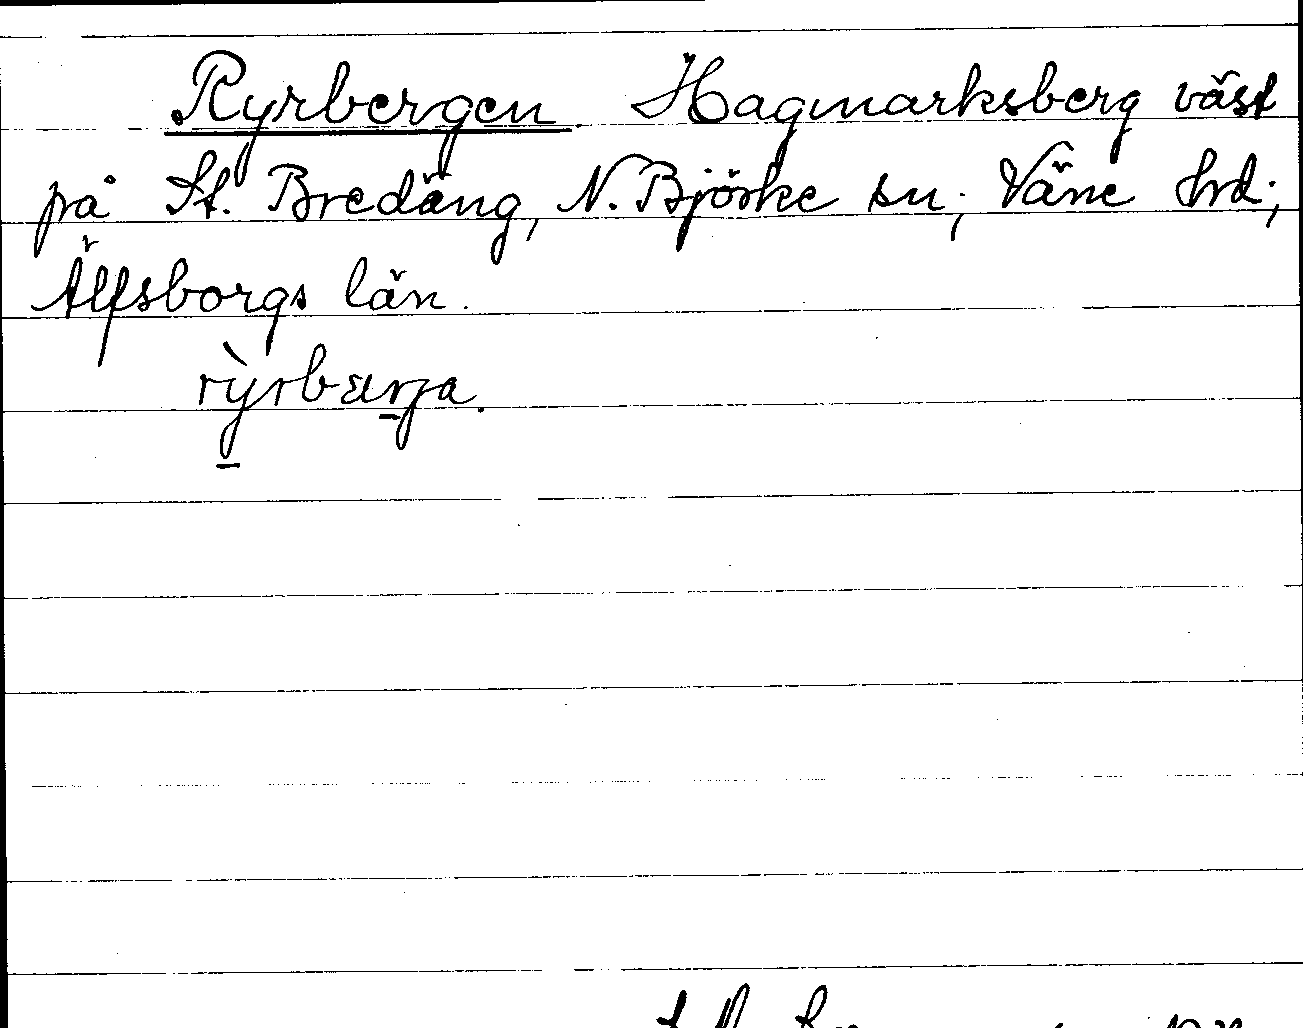 Ryrbergen. Hagmarksberg väst
på St. Bredäng, N. Björke sn; Väne hrd;
Älfsborgs län.
rỳrbærja.